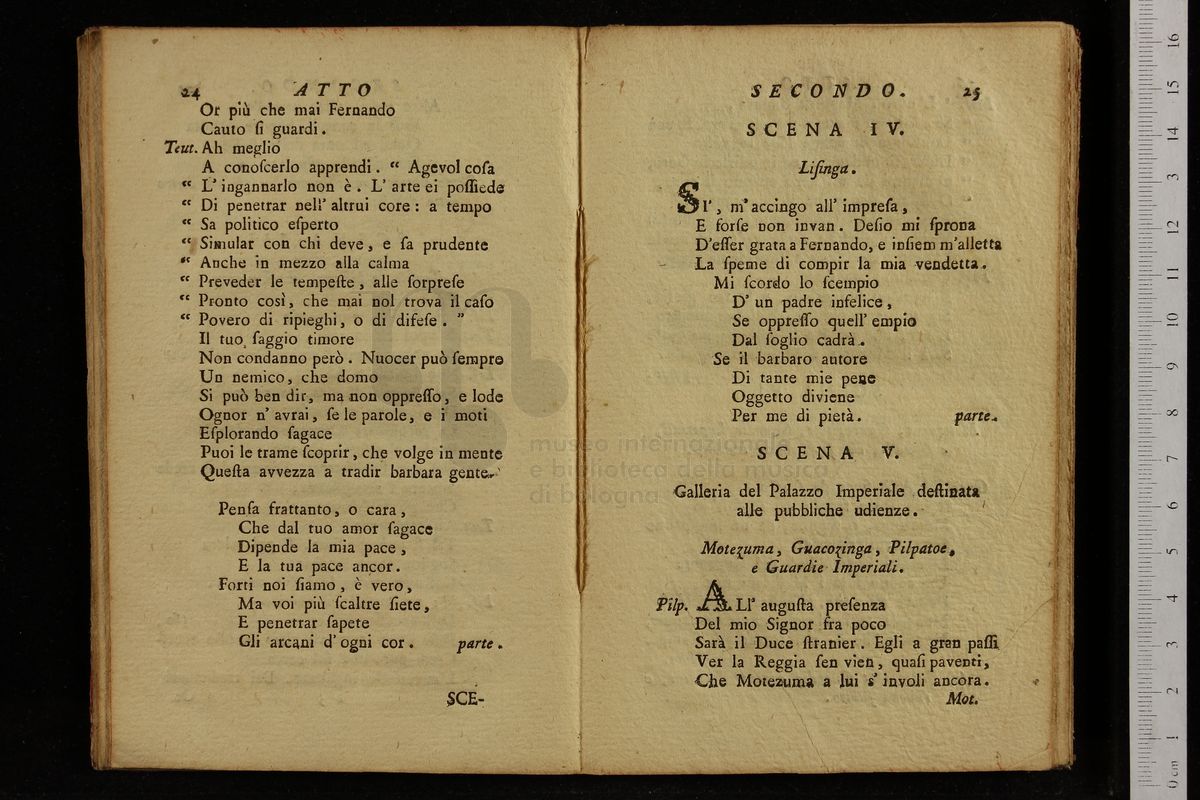 24 ATTO
Or più che mai Fernando
Cauto ſi guardi.
Teut. Ah meglio
A conoſcerlo apprendi. “ Agevol coſa
“ L' ingannarlo non è. L' arte ei poſſiede
“ Di penetrar nell' altrui core: a tempo
“ Sa politico eſperto
“ Simular con chi deve, e ſa prudente
“ Anche in mezzo alla calma
“ Preveder le tempeſte, alle ſorpreſe
“ Pronto così, che mai nol trova il caſo
“ Povero di ripieghi, o di difeſe. ”
Il tuo ſaggio timore
Non condanno però. Nuocer può ſempre
Un nemico, che domo
Si può ben dir, ma non oppreſſo, e lode
Ognor n' avrai, ſe le parole, e i moti
Eſplorando ſagace
Puoi le trame ſcoprir, che volge in mente
Queſta avvezza a tradir barbara gente.
Penſa frattanto, o cara,
Che dal tuo amor ſagace
Dipende la mia pace,
E la tua pace ancor.
Forti noi ſiamo, è vero,
Ma voi più ſcaltre ſiete,
E penetrar ſapete
Gli arcani d' ogni cor. parte.
SCE-
SECONDO. 25
SCENA IV.
Liſinga.
SI', m' accingo all' impreſa,
E forſe non invan. Deſio mi ſprona
D'eſſer grata a Fernando, e inſiem m'alletta
La ſpeme di compir la mia vendetta.
Mi ſcordo lo ſcempio
D' un padre infelice,
Se oppreſſo quell' empio
Dal ſoglio cadrà.
Se il barbaro autore
Di tante mie pene
Oggetto diviene
Per me di pietà. parte.
SCENA V.
Galleria del Palazzo Imperiale deſtinata
alle pubbliche udienze.
Motezuma, Guacozinga, Pilpatoe,
e Guardie Imperiali.
Pilp. ALl' auguſta preſenza
Del mio Signor fra poco
Sarà il Duce ſtranier. Egli a gran paſſi
Ver la Reggia ſen vien, quaſi paventi,
Che Motezuma a lui s' involi ancora.
Mot.
museo internazionale
e biblioteca della musica
di bologna
0 cm 1 2 3 4 5 6 7 8 9 10 11 12 13 14 15 16